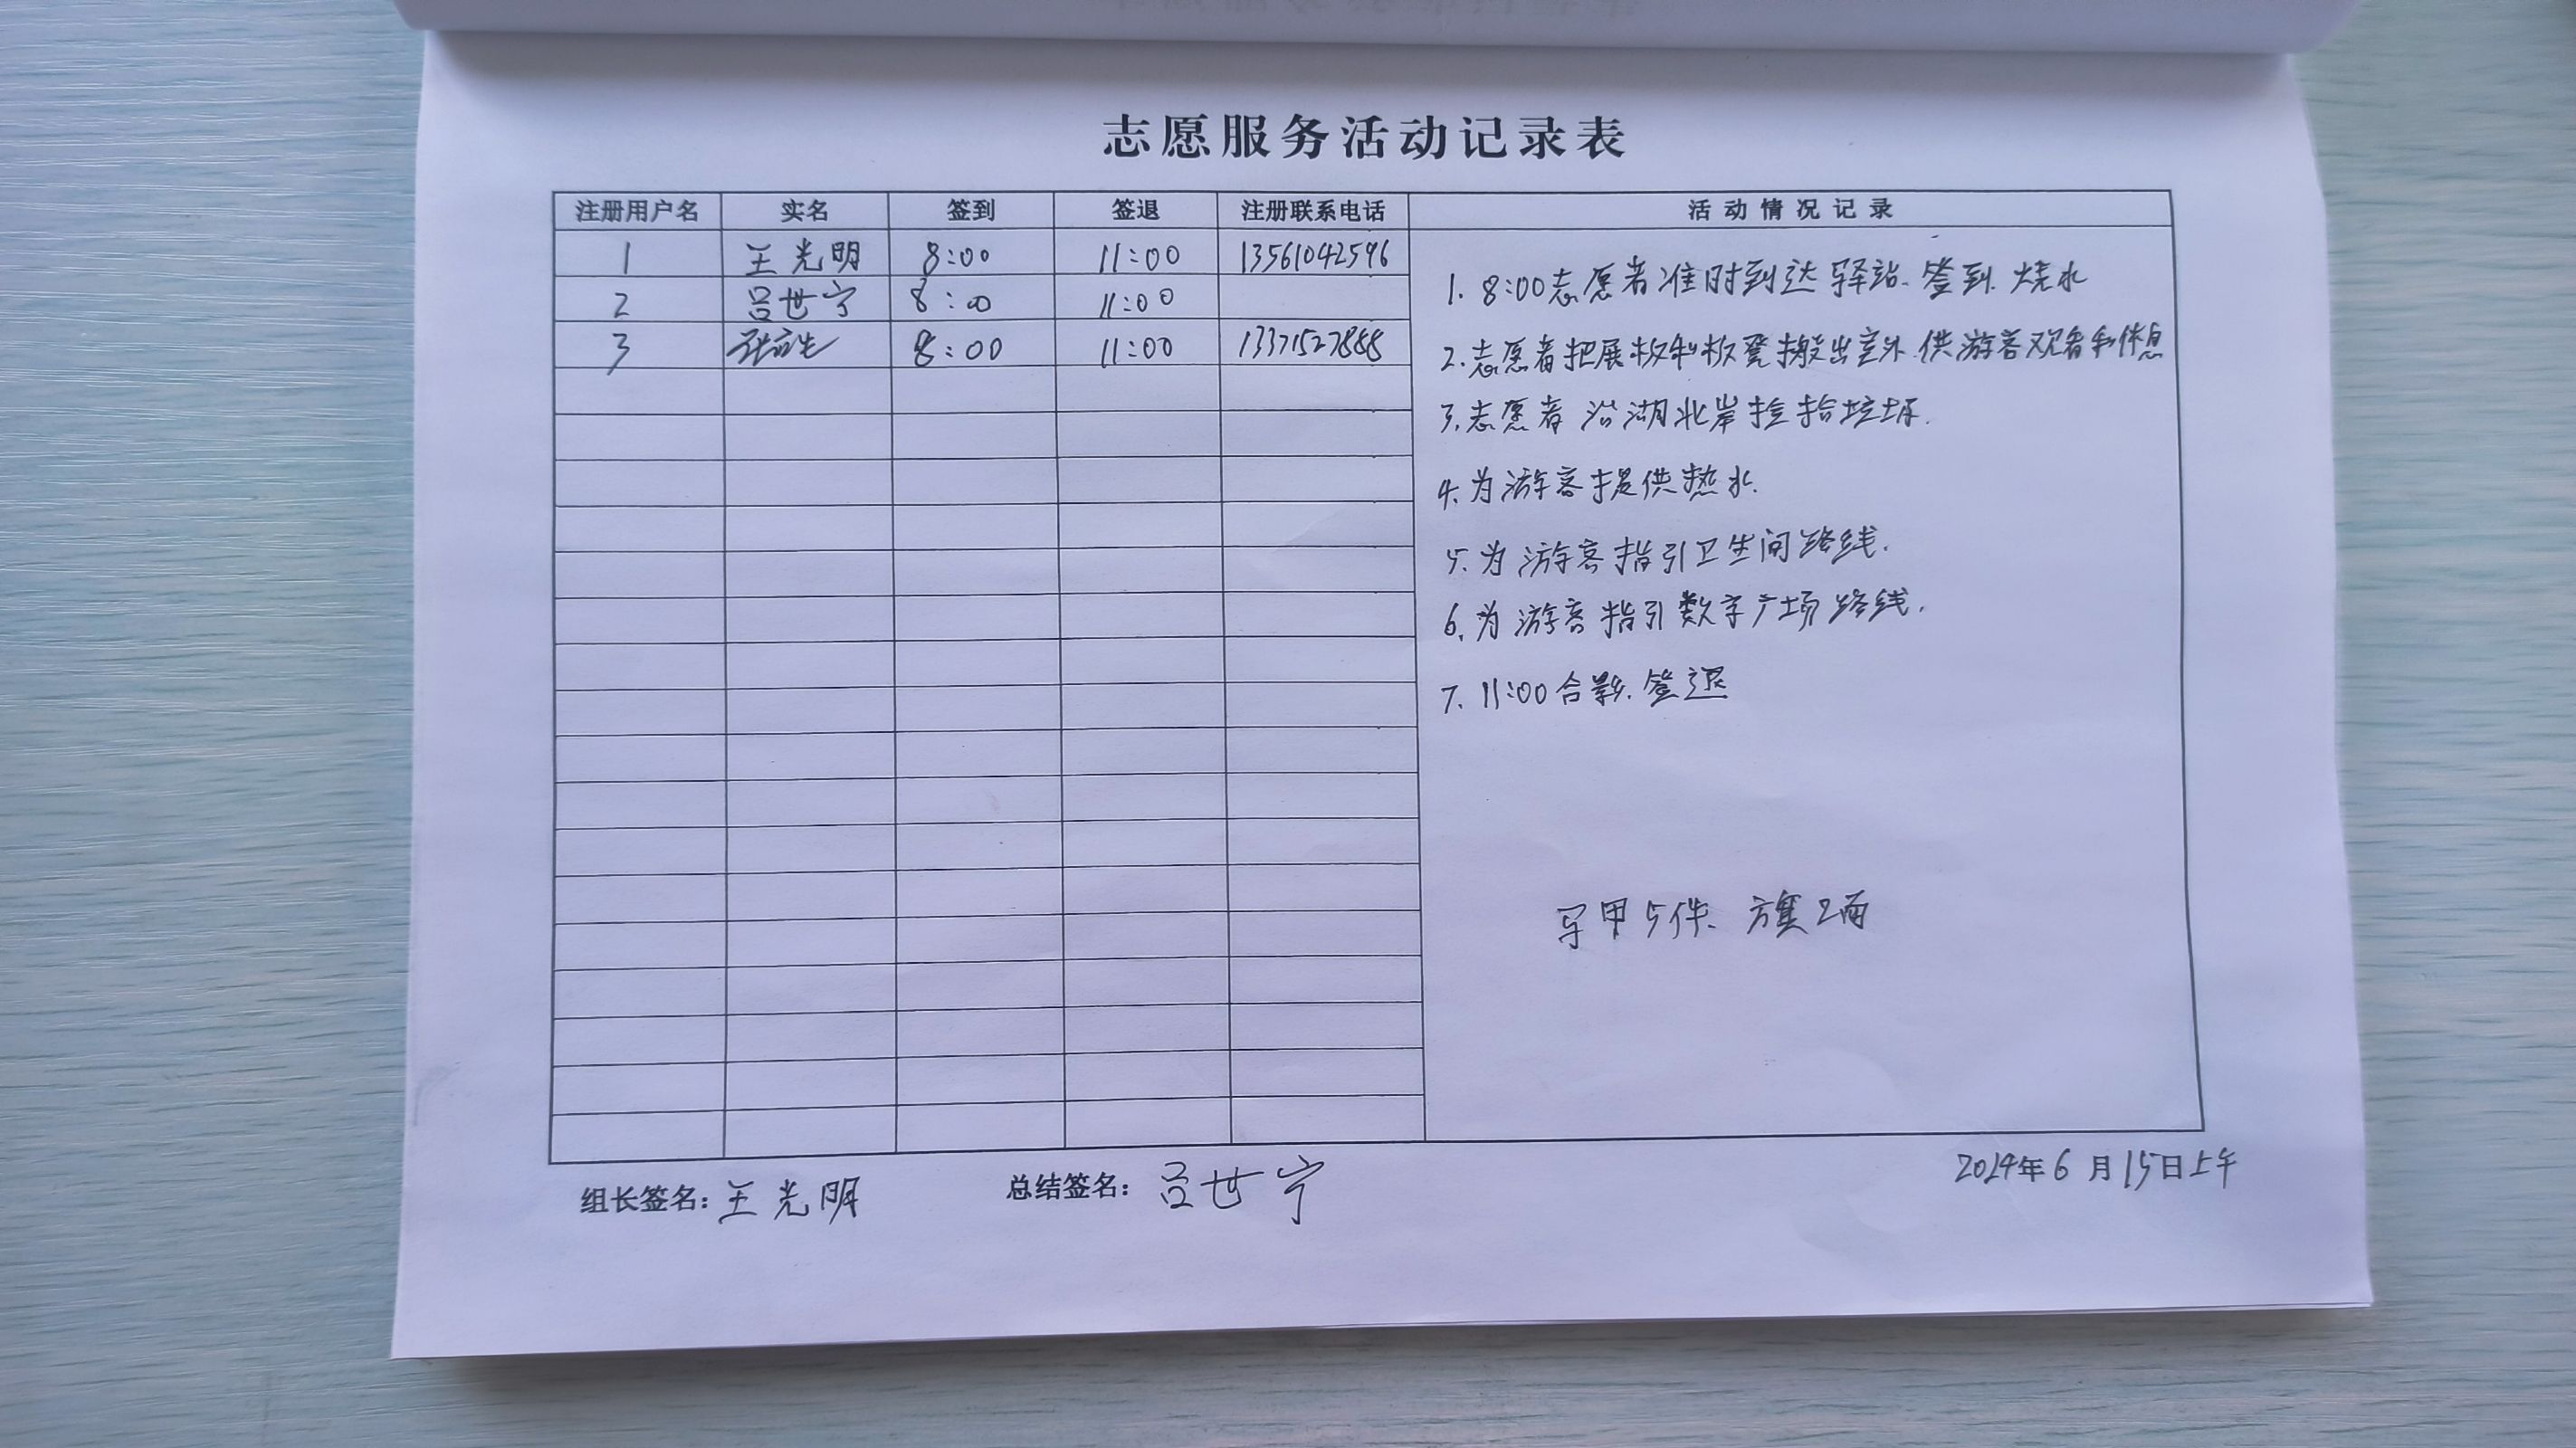 志愿服务活动记录表
注册用户名 实名 签到 签退 注册联系电话 活动情况记录
1 王光明 8:00 11:00 13561042596
2 吕世宁 8:00 11:00
3 8:00 11:00 13371527888
1. 8:00志愿者准时到达驿站、签到、烧水
2. 志愿者把展板和板凳搬出室外、供游客观看和休息
3. 志愿者沿湖北岸捡拾垃圾.
4. 为游客提供热水.
5. 为游客指引卫生间路线.
6. 为游客指引数字广场路线.
7. 11:00合影.签退
马甲5件、旗2面
组长签名:王光明 总结签名:吕世宁 2024年6月15日上午